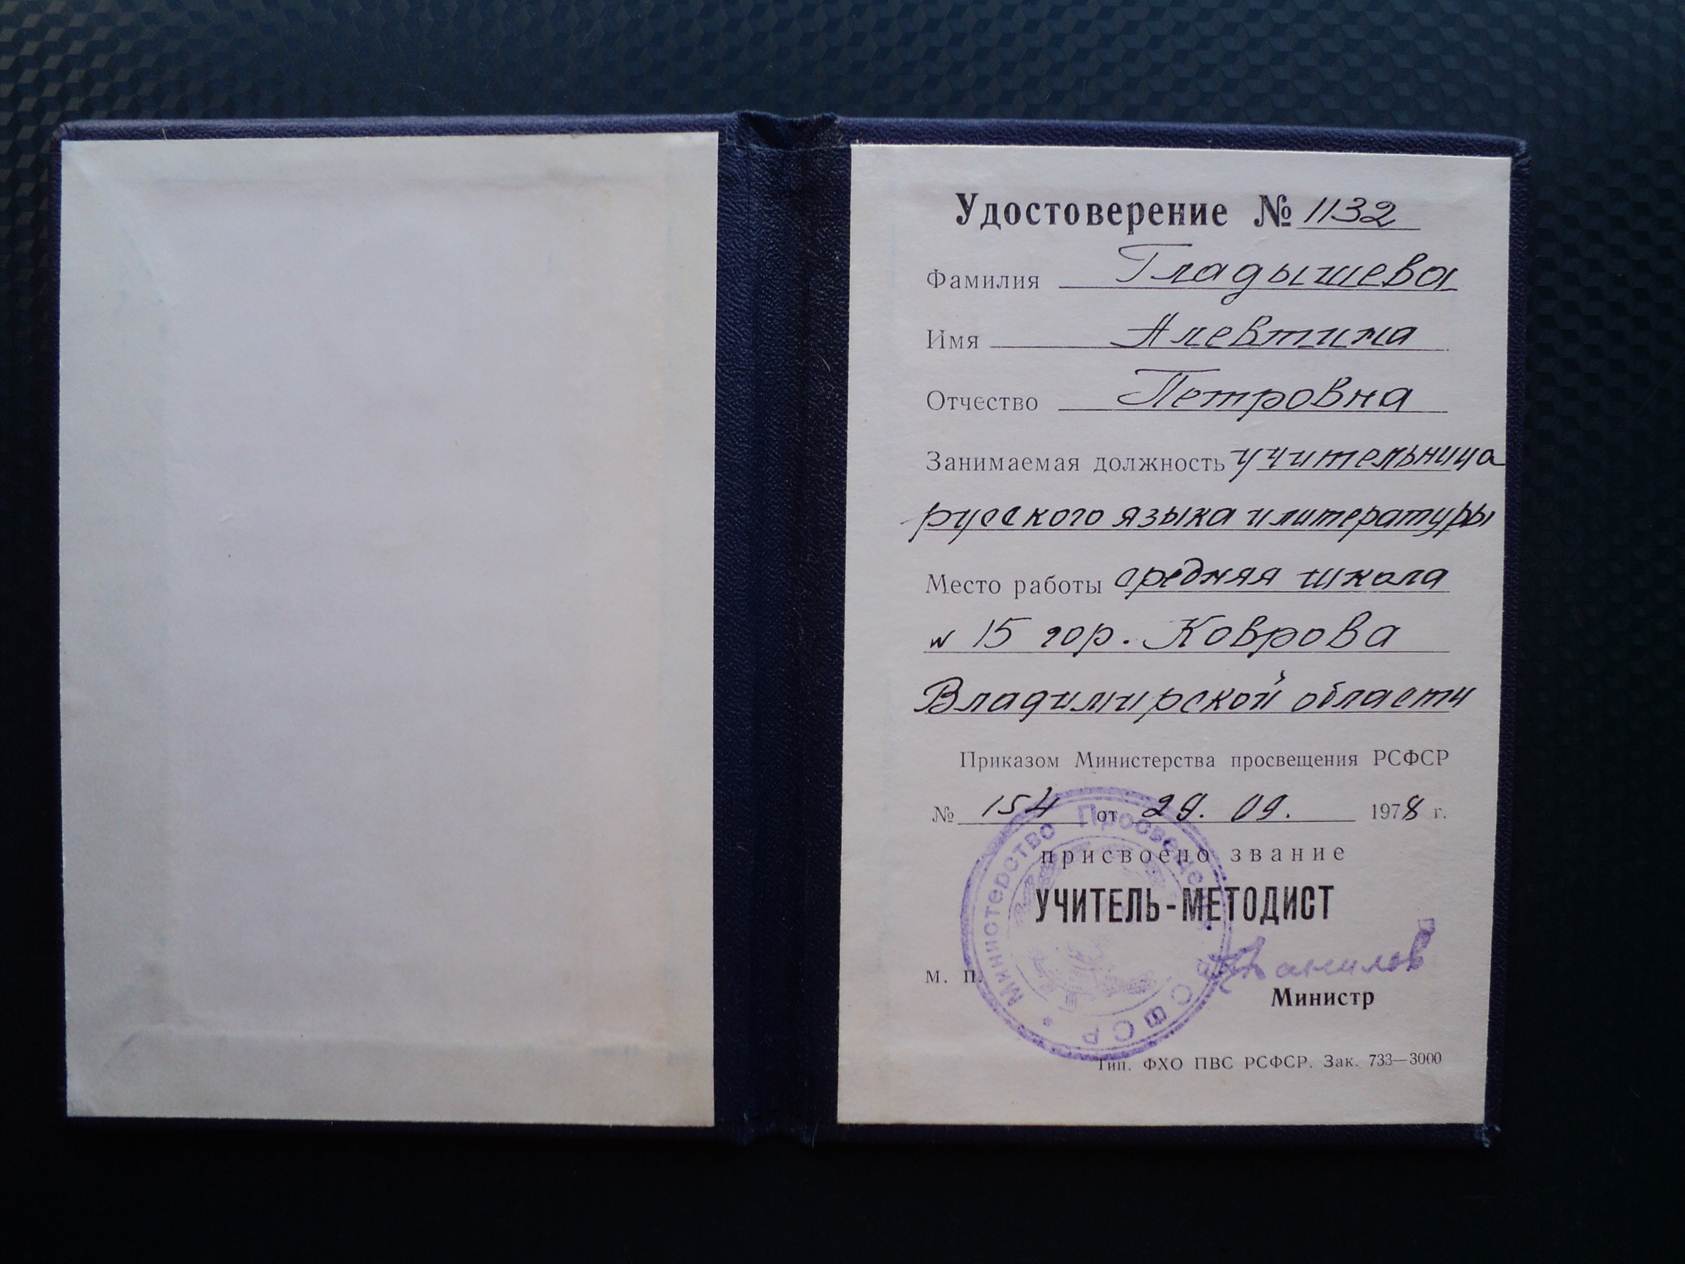 Удостоверение № 1132
Фамилия Гладышева
Имя Алевтина
Отчество Петровна
Занимаемая должность учительница
русского языка и литературы
Место работы средняя школа
№ 15 гор. Коврова
Владимирской области
Приказом Министерства просвещения РСФСР
№ 154 от 29. 09. 1978 г.
присвоено звание
УЧИТЕЛЬ-МЕТОДИСТ
Министерство Просвещения РСФСР
Данилов
М. П.
Министр
Тип. ФХО ПВС РСФСР. Зак. 733—3000